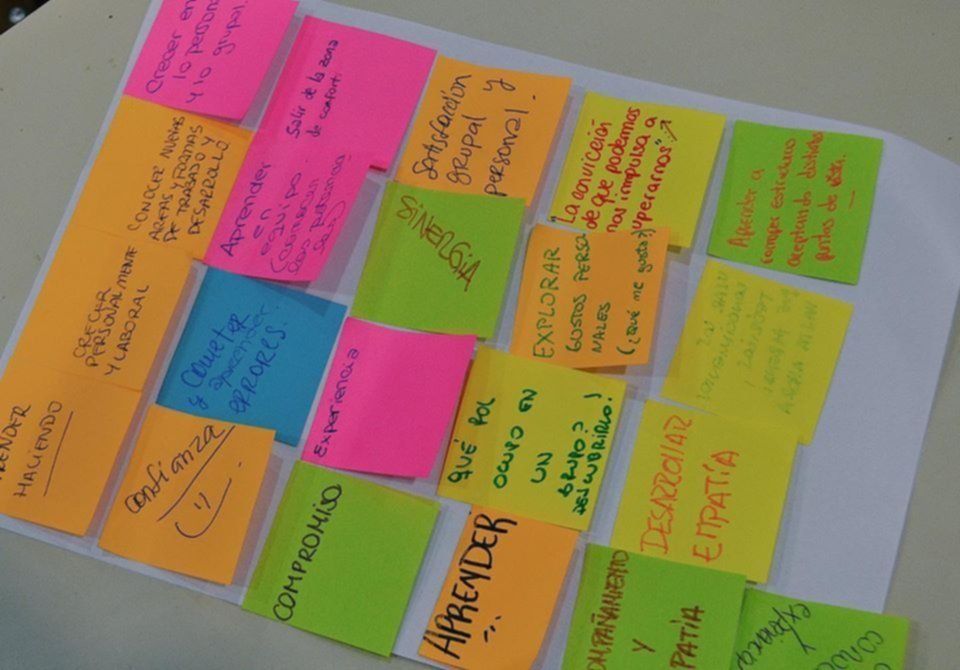 Crecer en
lo personal
y lo grupal.
Salir de la zona
de confort.
Satisfacción
grupal y
personal.
"La convicción
de que podemos
nos impulsa a
superarnos"
Aprender a
romper estructuras
aceptando distintos
puntos de vista.
CONOCER NUEVAS
AREAS Y FORMAS
DE TRABAJO Y
DESARROLLO
Aprender
en
equipo
SINERGIA
EXPLORAR
GUSTOS PERSO
NALES
(¿QUÉ me gusta?)
CRECER
PERSONALMENTE
Y LABORAL
y cometer
aprender
ERRORES.
Experiencia
QUÉ ROL
OCUPO EN
UN
GRUPO?
DESCUBRIRLO!
DESARROLLAR
EMPATÍA
RENDER
HACIENDO
Confianza
COMPROMISO
APRENDER
OMPAÑAMIENTO
Y
PATÍA